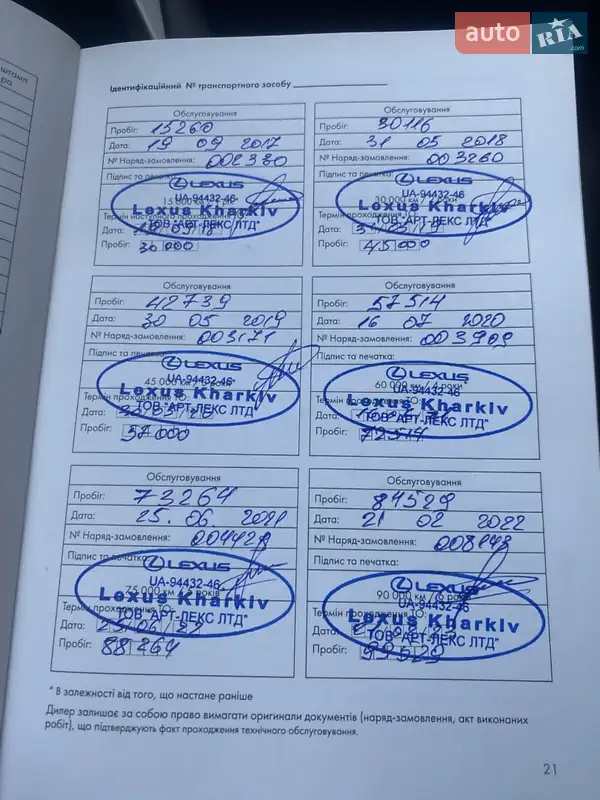 auto RIA .com
штамп
ра
Ідентифікаційний № транспортного засобу
Обслуговування
Пробіг: 15260
Дата: 19 09 2017
№ Наряд-замовлення: 002330
Підпис та печатка:
LEXUS
UA-94432-46
Lexus Kharkiv
ТОВ "АРТ-ЛЕКС ЛТД"
Дата:
Пробіг: 30 000
Обслуговування
Пробіг: 30116
Дата: 31 05 2018
№ Наряд-замовлення: 003260
Підпис та печатка:
LEXUS
UA-94432-46
30 000 км / 2 роки
Lexus Kharkiv
Термін проходження ТО:
ТОВ "АРТ-ЛЕКС ЛТД"
Дата: 31 05 19
Пробіг: 45 000
Обслуговування
Пробіг: 42739
Дата: 30 05 2019
№ Наряд-замовлення: 003171
Підпис та печатка:
LEXUS
UA-94432-46
45 000 км
Lexus Kharkiv
Термін проходження ТО:
ТОВ "АРТ-ЛЕКС ЛТД"
Дата: 30 05 20
Пробіг: 57000
Обслуговування
Пробіг: 57514
Дата: 16 07 2020
№ Наряд-замовлення: 003909
Підпис та печатка:
LEXUS
UA-94432-46
60 000 км / 4 роки
Lexus Kharkiv
Термін проходження ТО:
ТОВ "АРТ-ЛЕКС ЛТД"
Дата: 16 07 21
Пробіг: 72514
Обслуговування
Пробіг: 73264
Дата: 25. 06. 2021
№ Наряд-замовлення: 004428
Підпис та печатка:
LEXUS
UA-94432-46
75 000 км / 5 років
Lexus Kharkiv
Термін проходження ТО:
ТОВ "АРТ-ЛЕКС ЛТД"
Дата: 25 06 22
Пробіг: 88264
Обслуговування
Пробіг: 84529
Дата: 21 02 2022
№ Наряд-замовлення: 008143
Підпис та печатка:
LEXUS
UA-94432-46
90 000 км / 6 років
Lexus Kharkiv
Термін проходження ТО:
ТОВ "АРТ-ЛЕКС ЛТД"
Дата: 21 02 23
Пробіг: 99529
* В залежності від того, що настане раніше
Дилер залишає за собою право вимагати оригинали документів (наряд-замовлення, акт виконаних
робіт), що підтверджують факт проходження технічного обслуговування.
21